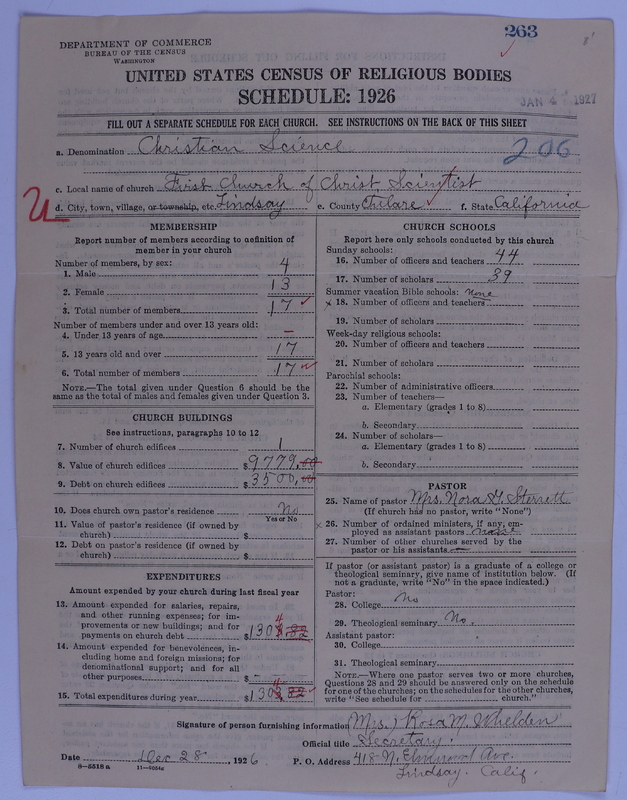 263
DEPARTMENT OF COMMERCE
BUREAU OF THE CENSUS
WASHINGTON
UNITED STATES CENSUS OF RELIGIOUS BODIES
SCHEDULE: 1926
JAN 4 1927
FILL OUT A SEPARATE SCHEDULE FOR EACH CHURCH. SEE INSTRUCTIONS ON THE BACK OF THIS SHEET
a. Denomination Christian Science
206
c. Local name of church First Church of Christ, Scientist
U
d. City, town, village, or township, etc. Lindsay e. County Tulare f. State California
MEMBERSHIP
Report number of members according to definition of
member in your church
Number of members, by sex:
1. Male 4
2. Female 13
3. Total number of members 17
Number of members under and over 13 years old:
4. Under 13 years of age —
5. 13 years old and over 17
6. Total number of members 17
NOTE.—The total given under Question 6 should be the
same as the total of males and females given under Question 3.
CHURCH BUILDINGS
See instructions, paragraphs 10 to 12
7. Number of church edifices 1
8. Value of church edifices $9779.00
9. Debt on church edifices $3500.00
10. Does church own pastor's residence No
Yes or No
11. Value of pastor's residence (if owned by
church) $
12. Debt on pastor's residence (if owned by
church) $
EXPENDITURES
Amount expended by your church during last fiscal year
13. Amount expended for salaries, repairs,
and other running expenses; for im-
provements or new buildings; and for
payments on church debt $1303.82
4
14. Amount expended for benevolences, in-
cluding home and foreign missions; for
denominational support; and for all
other purposes $ —
15. Total expenditures during year $1303.82
4
CHURCH SCHOOLS
Report here only schools conducted by this church
Sunday schools:
16. Number of officers and teachers 44
17. Number of scholars 39
Summer vacation Bible schools: None
x 18. Number of officers and teachers
19. Number of scholars
Week-day religious schools:
20. Number of officers and teachers
21. Number of scholars
Parochial schools:
22. Number of administrative officers
23. Number of teachers—
a. Elementary (grades 1 to 8)
b. Secondary
24. Number of scholars—
a. Elementary (grades 1 to 8)
b. Secondary
PASTOR
25. Name of pastor Mrs. Nora G. Sterrett
(If church has no pastor, write "None")
x 26. Number of ordained ministers, if any, em-
ployed as assistant pastors none
27. Number of other churches served by the
pastor or his assistants —
If pastor (or assistant pastor) is a graduate of a college or
theological seminary, give name of institution below. (If
not a graduate, write "No" in the space indicated.)
Pastor:
28. College No
29. Theological seminary No.
Assistant pastor:
30. College
31. Theological seminary
NOTE.—Where one pastor serves two or more churches,
Questions 28 and 29 should be answered only on the schedule
for one of the churches; on the schedules for the other churches,
write "See schedule for church."
Signature of person furnishing information (Mrs.) Rosa M. Whelden
Official title Secretary.
Date Dec 28, 1926 P. O. Address 418 N. Elmwood Ave.
8—5318 a 11—9064c Lindsay. Calif.